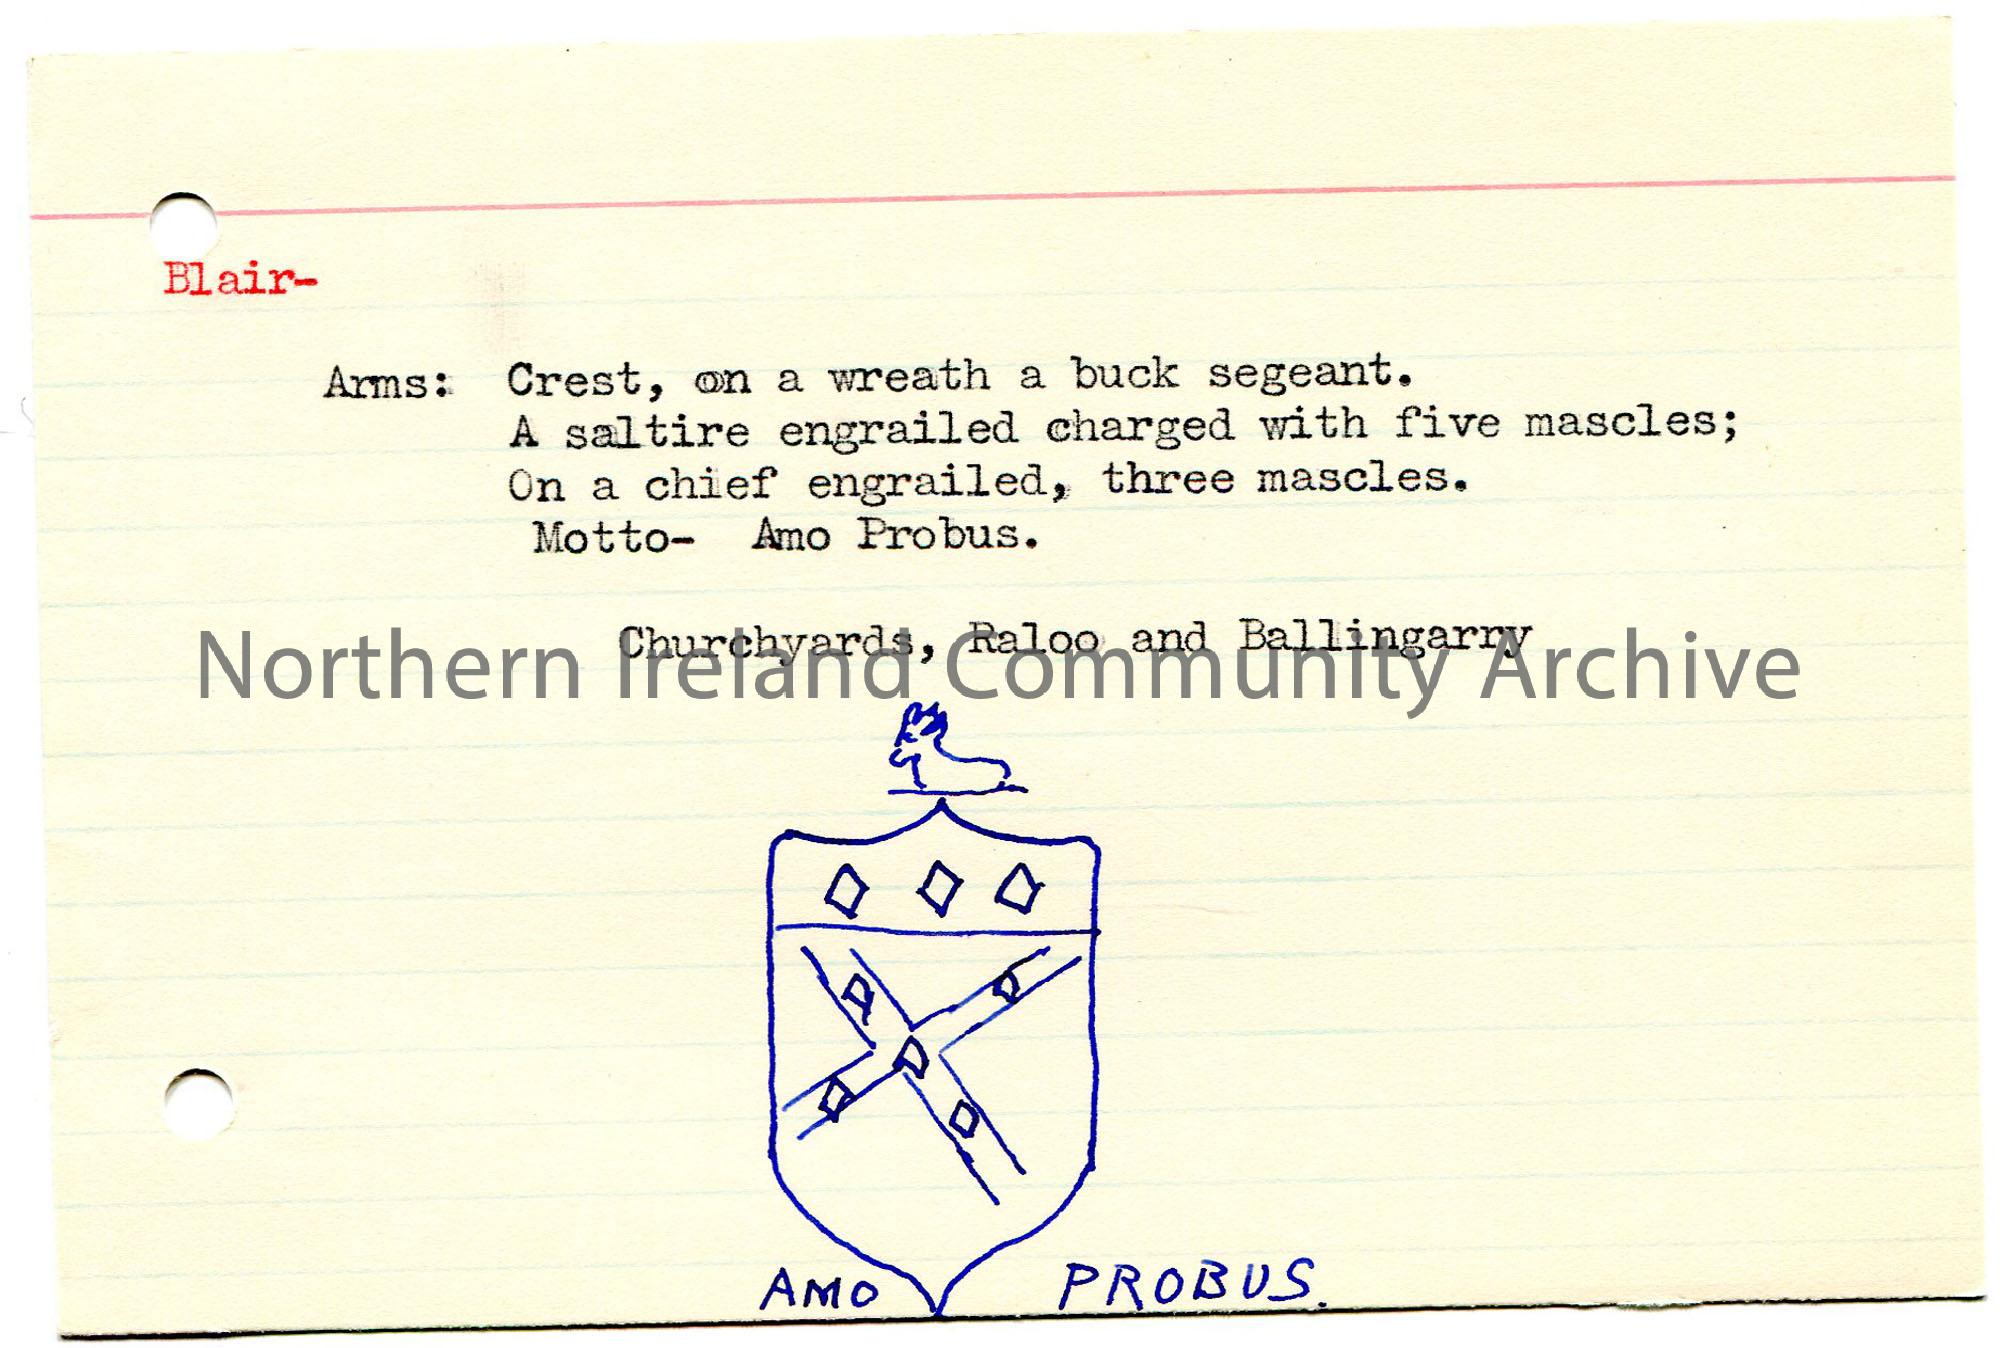 Blair-
Arms: Crest, on a wreath a buck segeant.
A saltire engrailed charged with five mascles;
On a chief engrailed, three mascles.
Motto- Amo Probus.
Churchyards, Raloo and Ballingarry
Northern Ireland Community Archive
AMO PROBUS.